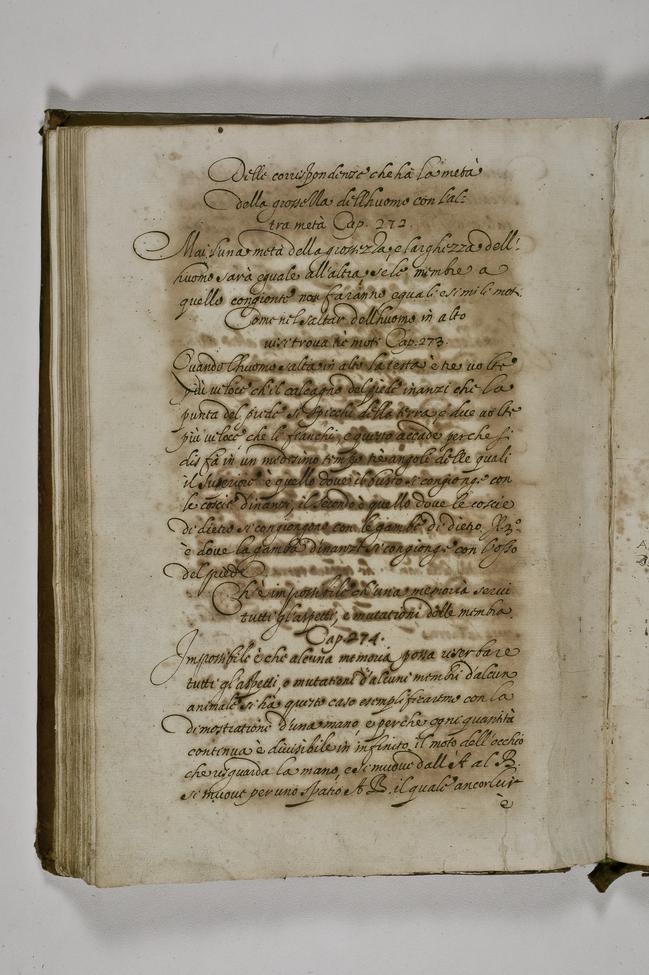 Delle corrispondenze che hà la metà
della grossezza dell'huomo con l'al:
tra metà Cap. 272.
Mai l'una metà della grossezza, e larghezza dell':
huomo sarà eguale all'altra, se le membre a
quelle congionte non faranno eguali e simili mot.
Come nel saltar dell'huomo in alto
vi si trova tre moti Cap. 273.
Quando l'huomo salta in alto la testa è tre volte
più veloce ch'il calcagno del piede inanzi che la
punta del piede si spicchi della terra e due volte
più veloce che li fianchi, e questo accade perche si
disfà in un medesimo tempo tre angoli delle quali
il superiore è quello dove il busto si congionge con
le coscie dinanzi, il secondo è quello dove le coscie
di dietro si congiongono con le gambe di dietro, Il 3.º
è dove la gamba dinanzi si congionge con l'osso
del piede
Ch'è impossibile ch'una memoria servi
tutti gl'aspetti, e mutationi delle membra.
Cap. 274.
Impossibile è che alcuna memoria possa riserbare
tutti gl'aspetti, o mutationi d'alcuni membri d'alcun
animale si hà questo caso esemplificaremo con la
dimostratione d'una mano, e perche ogni quantità
continua è divisibile in infinito, il moto dell'occhio
che risguarda la mano, e si muove dall'A al B.
si muove per uno spatio A B. il quale ancor lui
è